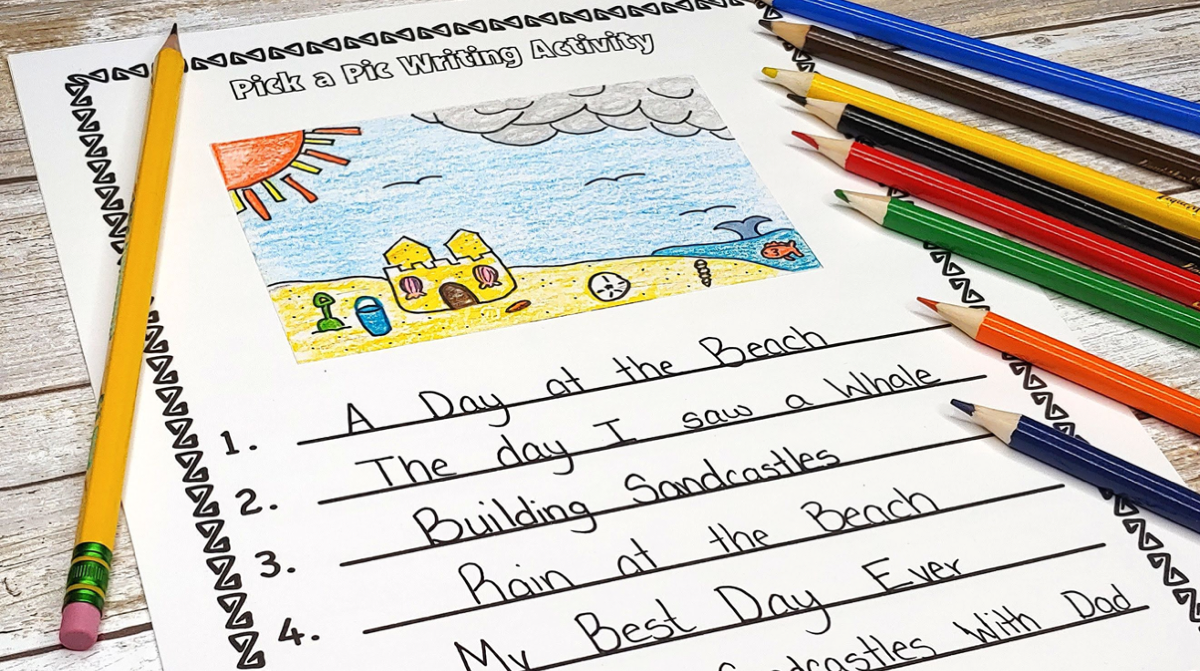 Pick a Pic Writing Activity
1. A Day at the Beach
2. The day I saw a Whale
3. Building Sandcastles
4. Rain at the Beach
My Best Day Ever
Sandcastles With Dad